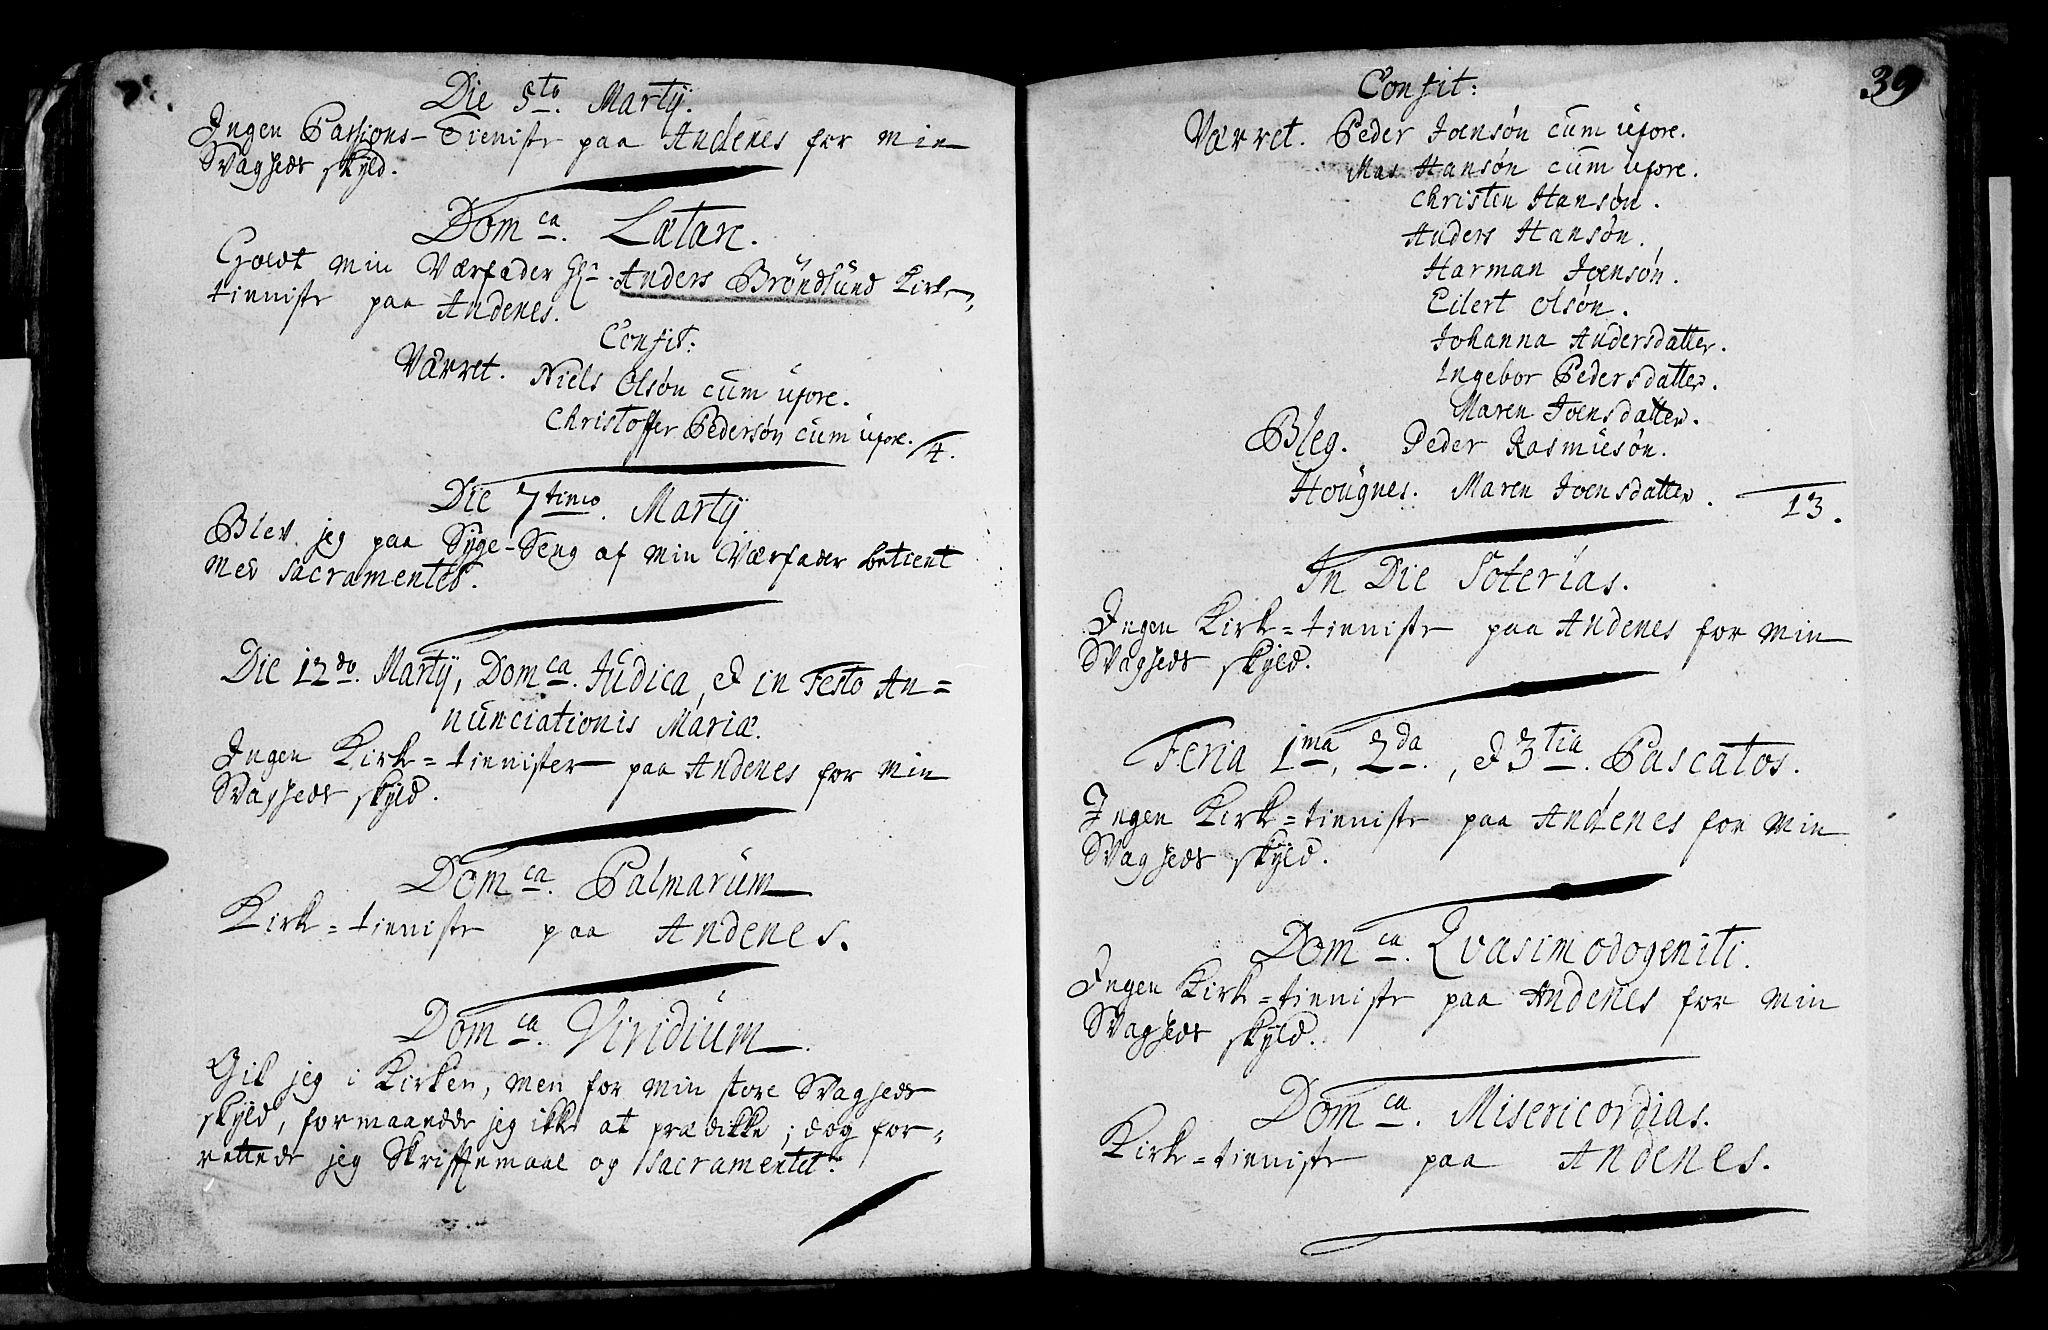 Die 5to. Martij.
Ingen Passions-Tieniste paa Andenes for min
Svaghedz skyld.
Domca. Lætare.
Giorde min Værfader Hr. Anders Bröndlund Kirke,
tieniste paa Andenes.
Confit:
Værret. Niels Olsøn cum uxore.
Christoffer Pedersøn cum uxore. 4.
Die 7timo. Martij.
Blev jeg paa Syge-Seng af min Værfader betient
med Sacramentet.
Die 12do. Martij, Domca. Judica, & in Festo An=
nunciationis Mariæ.
Ingen Kirke=tienister paa Andenes for min
Svaghedz skyld.
Domca. Palmarum
Kirke=tieniste paa Andenes.
Domca. Viridium.
Gik jeg i Kirken, men for min store Svaghedz
skyld, formaaedde jeg ikke at prædikke; dog for,
rettede jeg Skriftemaal og Sacramentet.
39
Confit:
Værret. Peder Joensøn cum uxore.
Mas Hansøn cum uxore.
Christen Hansøn.
Anders Hansøn.
Harman Joensøn.
Eilert Olsøn.
Johanna Andersdatter.
Ingebor Pedersdatter.
Maren Joensdatter.
Bleg. Peder Rasmusøn.
Hougnes. Maren Joensdatter. 13.
In Die Soterias.
Ingen Kirke=tieniste paa Andenes for min
Svaghedz skyld.
Feria 1ma, 2da., & 3tia. Pascatos.
Ingen Kirke=tieniste paa Andenes for min
Svaghedz skyld.
Domca. Qvasimodogeniti.
Ingen Kirke=tieniste paa Andenes for min
Svaghedz skyld.
Domca. Misericordias.
Kirke=tieniste paa Andenes.